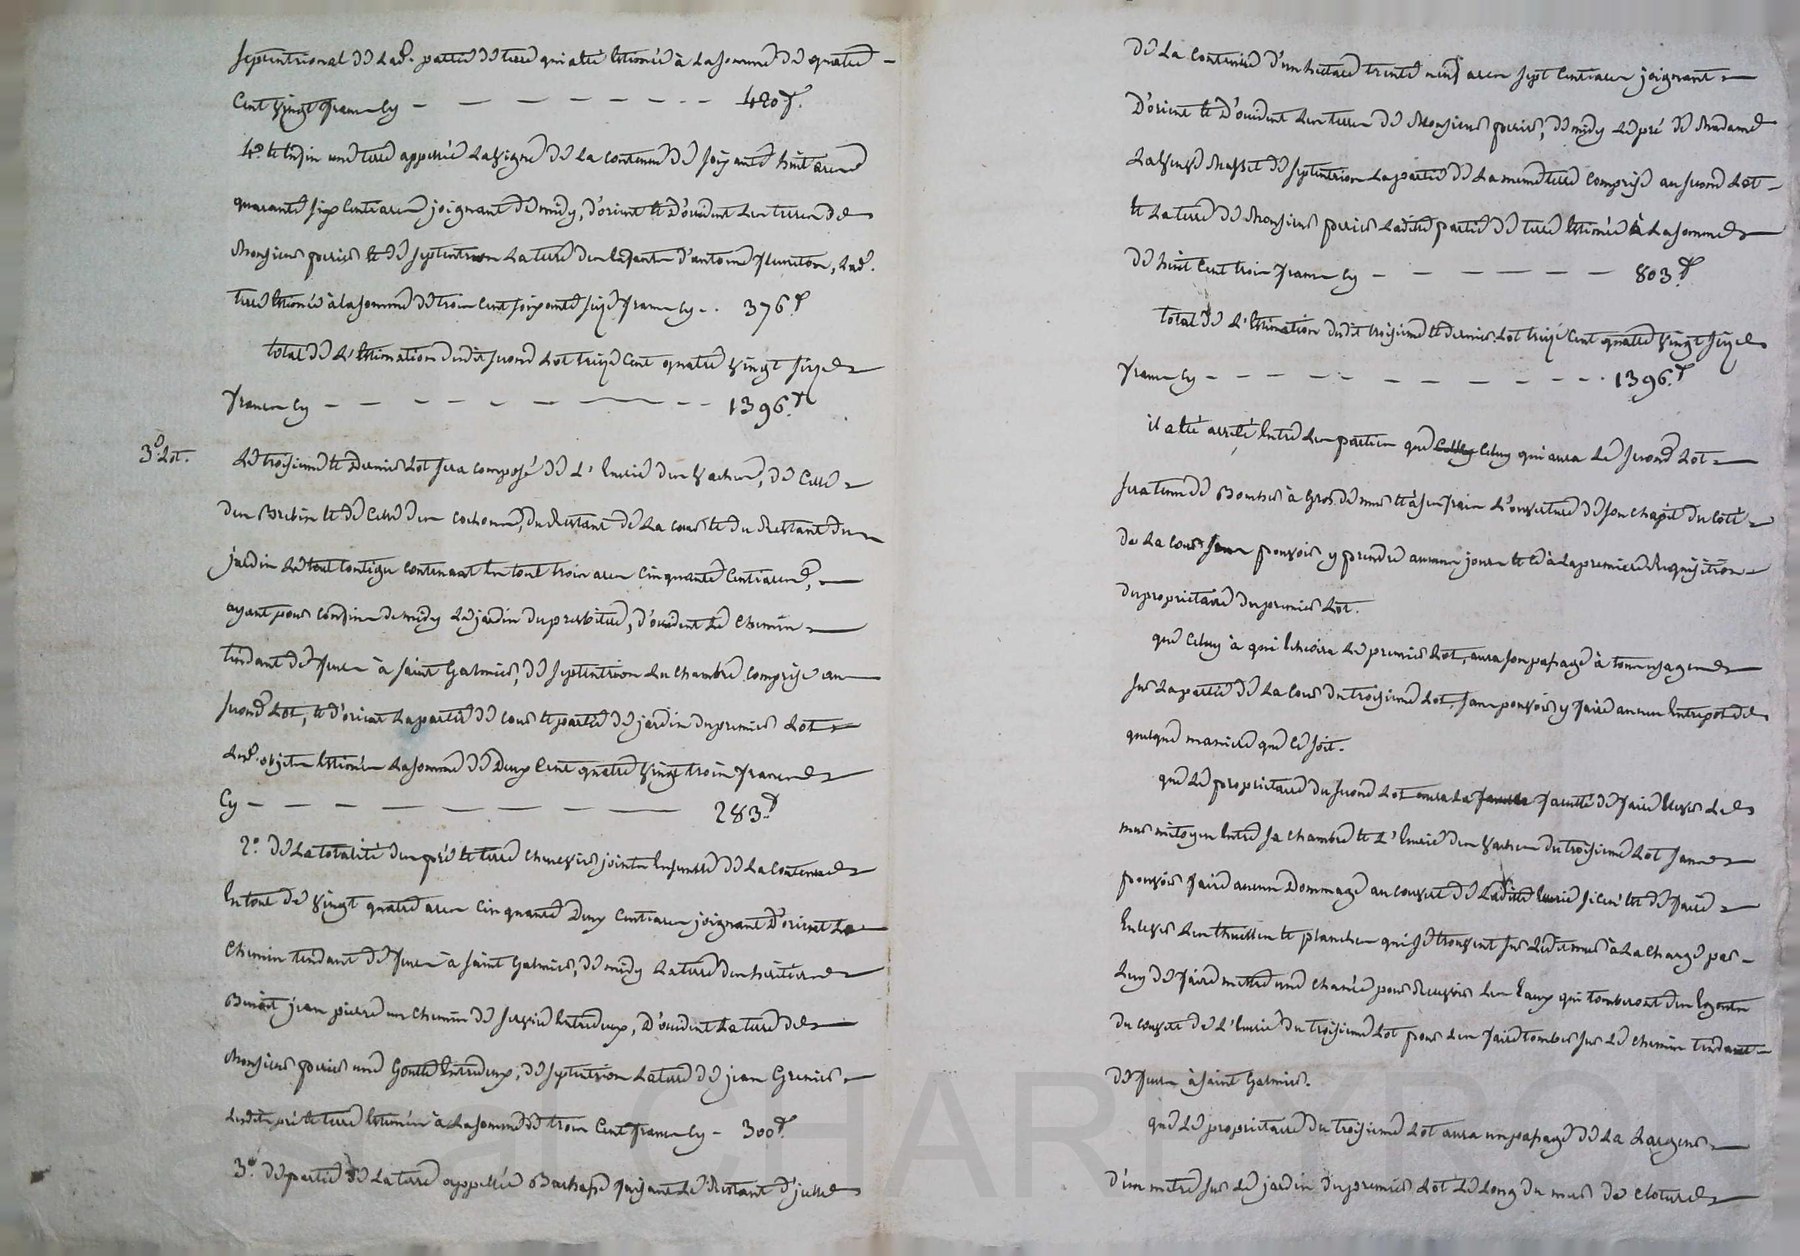 septentrional de lad. partie de terre qui a été estimée à la somme de quatre
cent vingt francs cy 420 f.
4.° et enfin une terre appellée Lavigne de la contenue de soixante huit ares
quarante six centiares joignant de midy, d'orient et d'occident les terres de
Monsieur perier et de septentrion la terre des enfants d'antoine, lad.
terre estimée à la somme de trois cent soixante seize francs cy.. 376.f
total de l'estimation dudit second lot treize cent quatre vingt seize
francs cy 1396.f
3.e Lot. Le troisieme et dernier lot sera composé de l'écurie des vaches, de celle
des Brebis et de celle des cochons, du Restant de la cour et du Restant du
jardin contigu contenant en tout trois ares cinquante centiares,
ayant pour confins de midy le jardin du presbitere, d'occident le chemin
tendant de à saint Galmier, de septentrion la chambre comprise au
second lot, et d'orient la partie de cour et partie de jardin du premier lot
lesd. objets estimés la somme de Deux cent quatre vingt trois francs
cy 283.f
2.° de la totalité des pré et terre chenevier joints ensemble de la contenue
en tout de vingt quatre ares cinquante Deux centiares joignant d'orient le
chemin tendant de à saint Galmier, de midy la terre des héritiers
Benoit jean pierre un chemin de service entredeux, d'occident la terre de
Monsieur perier une Goutte entredeux, de septentrion la terre de jean Grenier
lesdits pré et terre estimés à la somme de trois cent francs cy 300f
3.° de partie de la terre appellée faisant le Restant d'icelle
de la contenue d'un hectare trente neuf ares sept centiares joignant
D'orient et D'occident les terres de Monsieur perier, de midy le pré de Madame
la veuve de septentrion la partie de la meme terre comprise au second lot
et la terre de Monsieur perier ladite partie de terre estimée à la somme
de huit cent trois francs cy 803.f
total de l'estimation dudit troisieme et dernier lot treize cent quatre vingt seize
francs cy 1396.f
il a été arrêté entre les parties que celuy qui aura le second lot
sera tenu de Boucher à Gros de mur et à ses frais l'ouverture de son chapit du côté
de la cour sans pouvoir y prendre aucun jour et ce à la premiere Requisition
du proprietaire du premier lot.
que celuy à qui echoira le premier lot, aura son passage à tous usages
sur la partie de la cour du troisieme lot, sans pouvoir y faire aucun entrepot de
quelque maniere que ce soit.
que le proprietaire du second lot aura la faculté de faire élever le
mur mitoyen entre sa chambre et l'écurie des vaches du troisieme lot sans
pouvoir faire aucun Dommage au couvert de ladite écurie si ce n'est de faire
enlever les thuilles et planches qui se trouvent sur ledit mur à la charge par
luy de faire mettre une chanée pour Recevoir les eaux qui tomberont des egouts
du couvert de l'écurie du troisieme lot pour les faire tomber sur le chemin tendant
de à saint Galmier.
que le proprietaire du troisieme lot aura un passage de la largeur
d'un metre sur le jardin du premier lot le long du mur de cloture